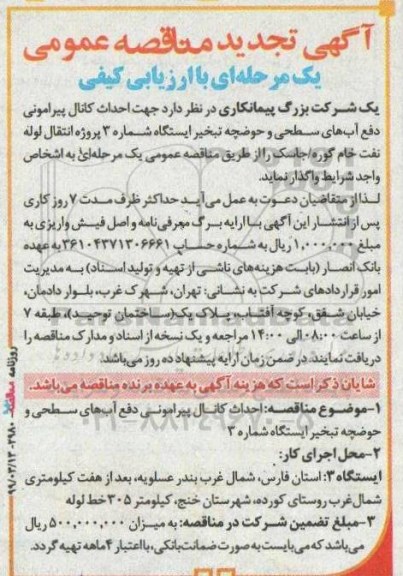 آگهی تجدید مناقصه عمومی
یک مرحله‌ای با ارزیابی کیفی
یک شرکت بزرگ پیمانکاری در نظر دارد جهت احداث کانال پیرامونی
دفع آب‌های سطحی و حوضچه تبخیر ایستگاه شماره ۳ پروژه انتقال لوله
نفت خام گوره/جاسک را از طریق مناقصه عمومی یک مرحله‌ای به اشخاص
واجد شرایط واگذار نماید.
لذا از متقاضیان دعوت به عمل می‌آید حداکثر ظرف مدت ۷ روز کاری
پس از انتشار این آگهی با ارایه برگ معرفی‌نامه و اصل فیش واریزی به
مبلغ ۱,۰۰۰,۰۰۰ ریال به شماره حساب ۳۶۱۰۴۳۷۱۳۰۶۶۶۱ به عهده
بانک انصار (بابت هزینه‌های ناشی از تهیه و تولید اسناد) به مدیریت
امور قراردادهای شرکت به نشانی: تهران، شهرک غرب، بلوار دادمان،
خیابان شفق، کوچه آفتاب، پلاک یک (ساختمان توحید)، طبقه ۷
از ساعت ۰۸:۰۰ الی ۱۴:۰۰ مراجعه و یک نسخه از اسناد و مدارک مناقصه را
دریافت نمایند. در ضمن زمان ارایه پیشنهاد ده روز می‌باشد.
شایان ذکر است که هزینه آگهی به عهده برنده مناقصه می‌باشد.
۱-موضوع مناقصه: احداث کانال پیرامونی دفع آب‌های سطحی و
حوضچه تبخیر ایستگاه شماره ۳
۲-محل اجرای کار:
ایستگاه ۳: استان فارس، شمال غرب بندر عسلویه، بعد از هفت کیلومتری
شمال غرب روستای کورده، شهرستان خنج، کیلومتر ۳۰۵ خط لوله
۳-مبلغ تضمین شرکت در مناقصه: به میزان ۵۰۰,۰۰۰,۰۰۰ ریال
می‌باشد که می‌بایست به صورت ضمانت بانکی، با اعتبار ۴ ماهه تهیه گردد.
روزنامه مناقصه ۳۹۸۰-۹۹/۰۳/۱۳
ParsNamadData
۰۲۱-۸۸۳۴۹۶۷۰-۵